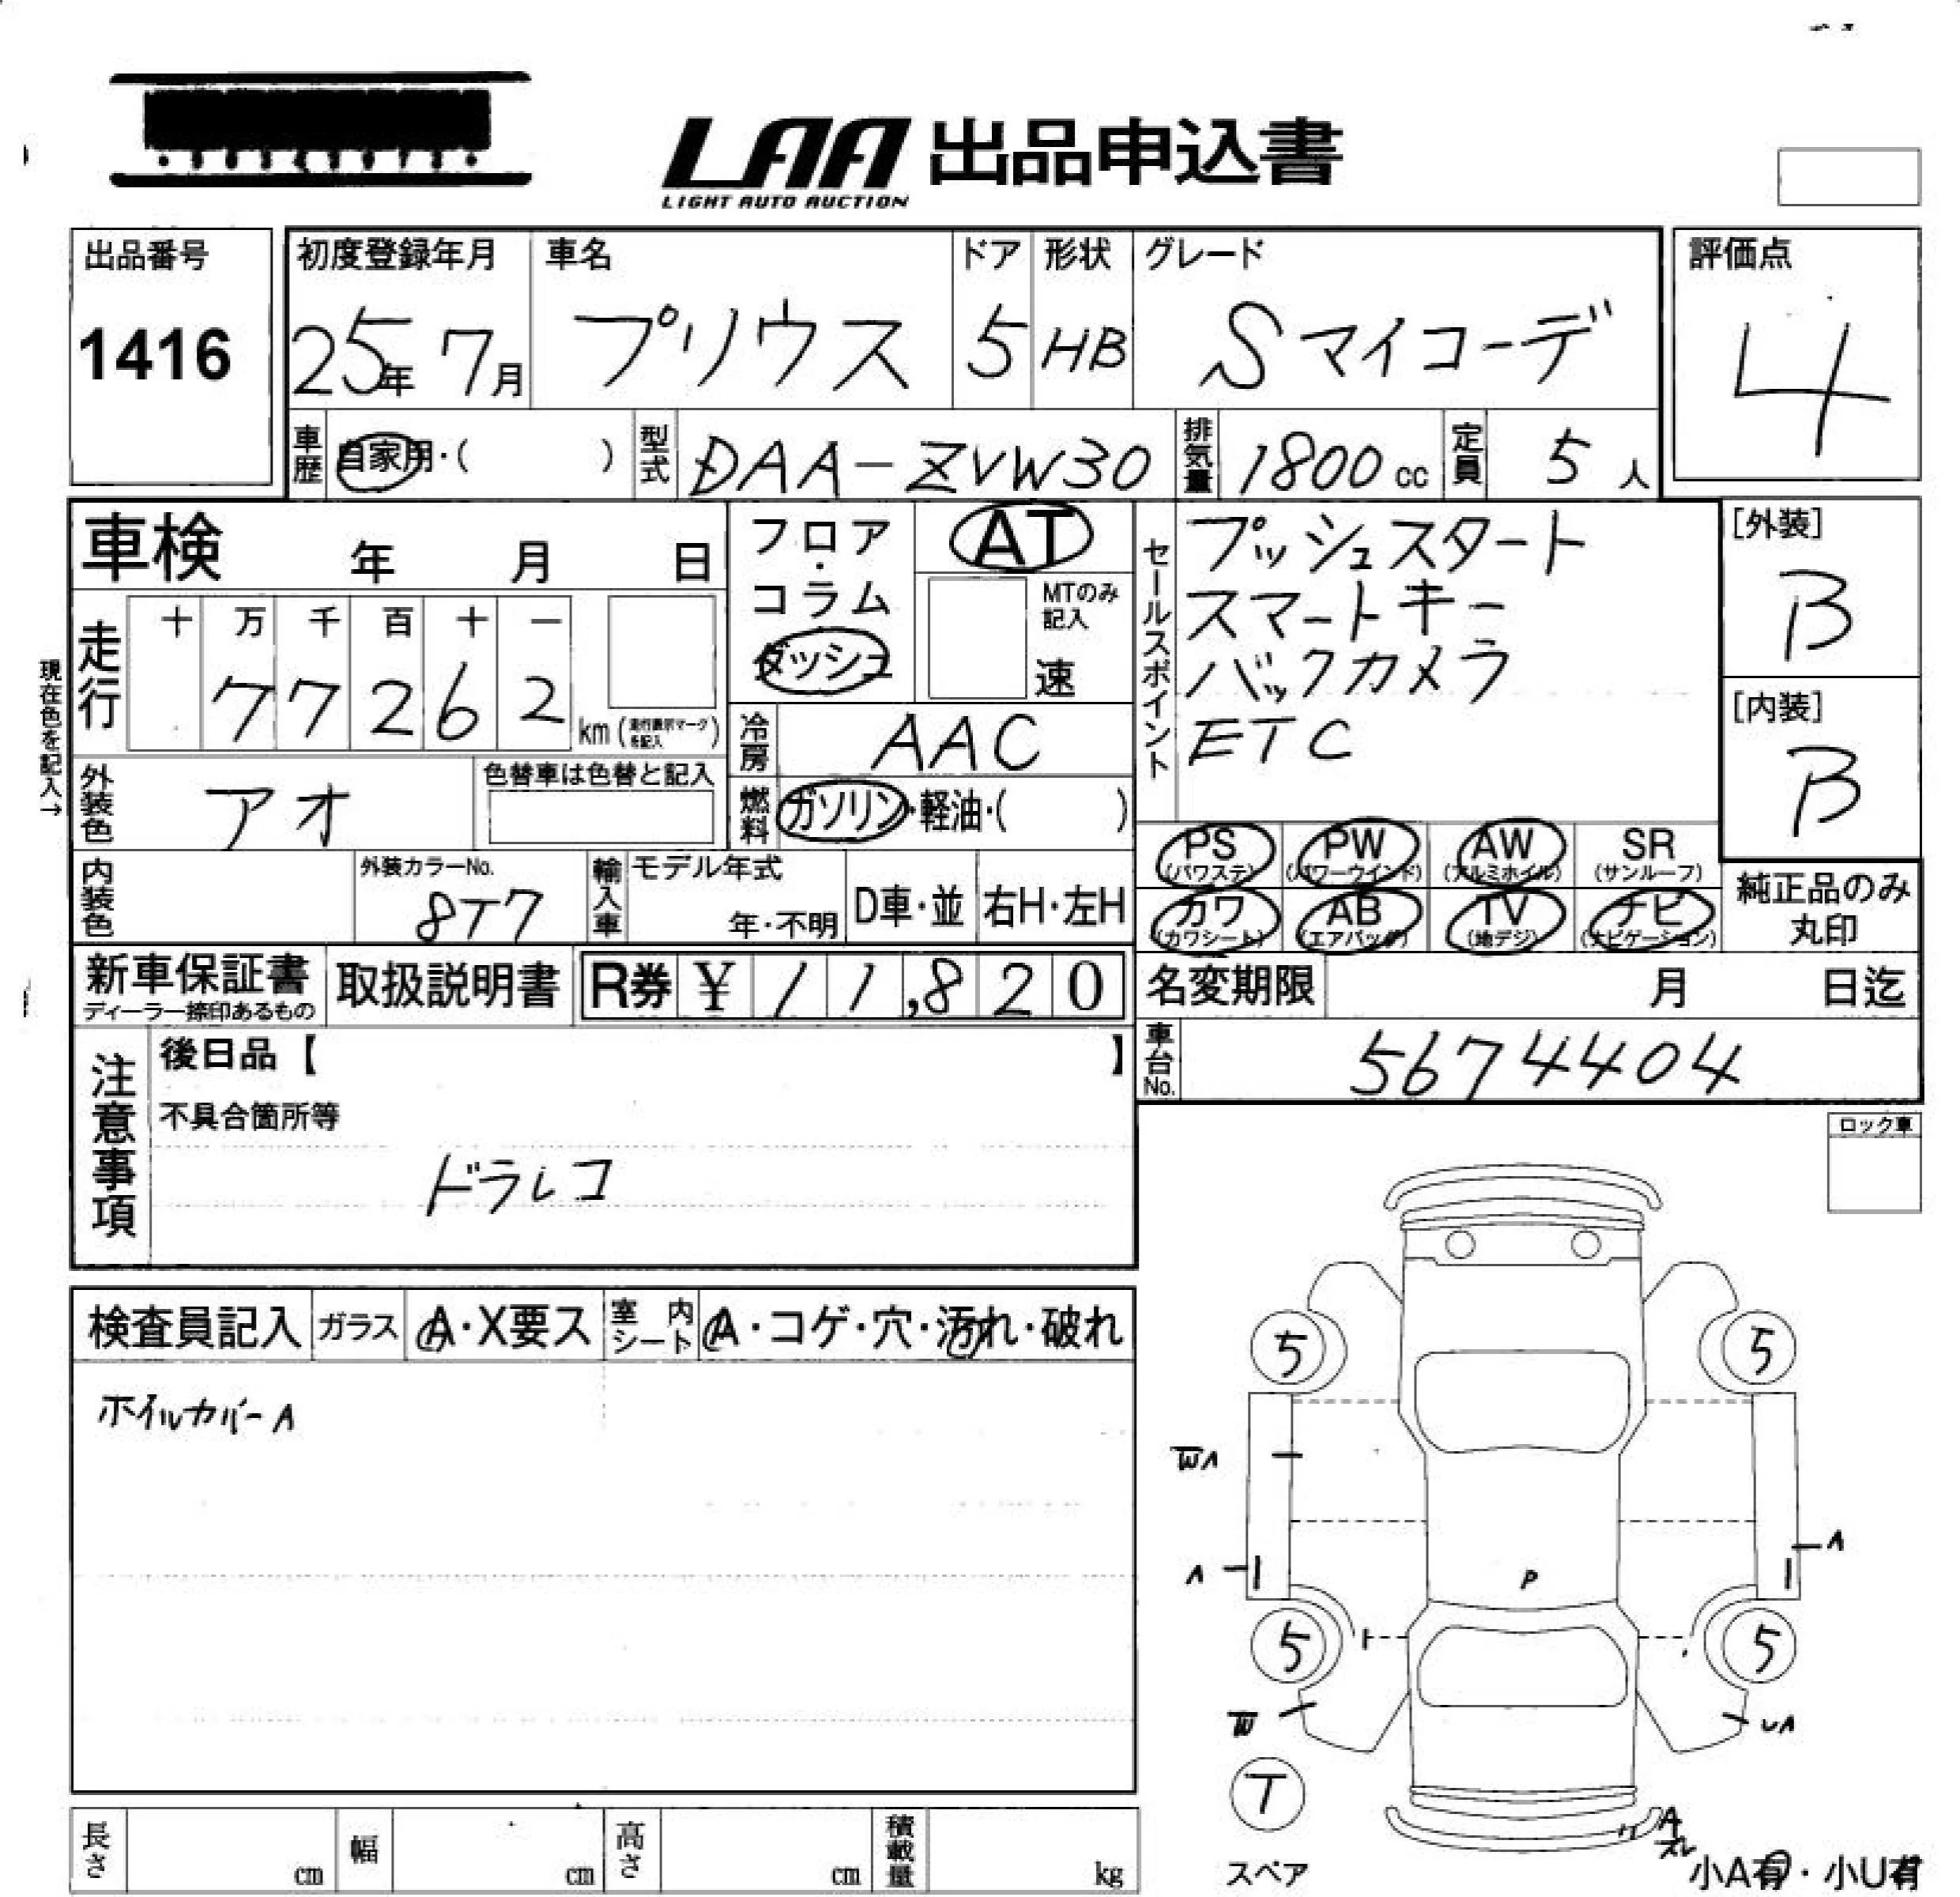 LAA 出品申込書
LIGHT AUTO AUCTION
出品番号
1416
初度登録年月
25年 7月
車名
プリウス
ドア
5
形状
HB
グレード
Sマイコーデ
評価点
4
車歴
自家用・( )
型式
DAA-ZVW30
排気量
1800 cc
定員
5 人
車検 年 月 日
フロア・コラム
ダッシュ
AT
MTのみ記入
速
セールスポイント
プッシュスタート
スマートキー
バックカメラ
ETC
[外装]
B
[内装]
B
現在色を記入→
走行
十 万 千 百 十 一
7 7 2 6 2
km(走行表示マークを記入)
冷房
AAC
外装色
アオ
色替車は色替と記入
燃料
ガソリン・軽油・( )
PS
(パワステ)
PW
(パワーウインド)
AW
(アルミホイル)
SR
(サンルーフ)
カワ
(カワシート)
AB
(エアバッグ)
TV
(地デジ)
ナビ
(ナビゲーション)
純正品のみ
丸印
内装色
外装カラーNo.
8T7
輸入車
モデル年式
年・不明
D車・並
右H・左H
新車保証書
ディーラー捺印あるもの
取扱説明書
R券 ¥ 1 1,8 2 0
名変期限 月 日迄
車台No.
5674404
注意事項
後日品【 】
不具合箇所等
ドラレコ
ロック車
検査員記入
ガラス
A・X要ス
室内シート
A・コゲ・穴・汚れ・破れ
ホイルカバーA
5
5
WA
A
A
P
5
5
W
UA
T
スペア
A
ズレ
小A有・小U有
長さ cm
幅 cm
高さ cm
積載量 kg